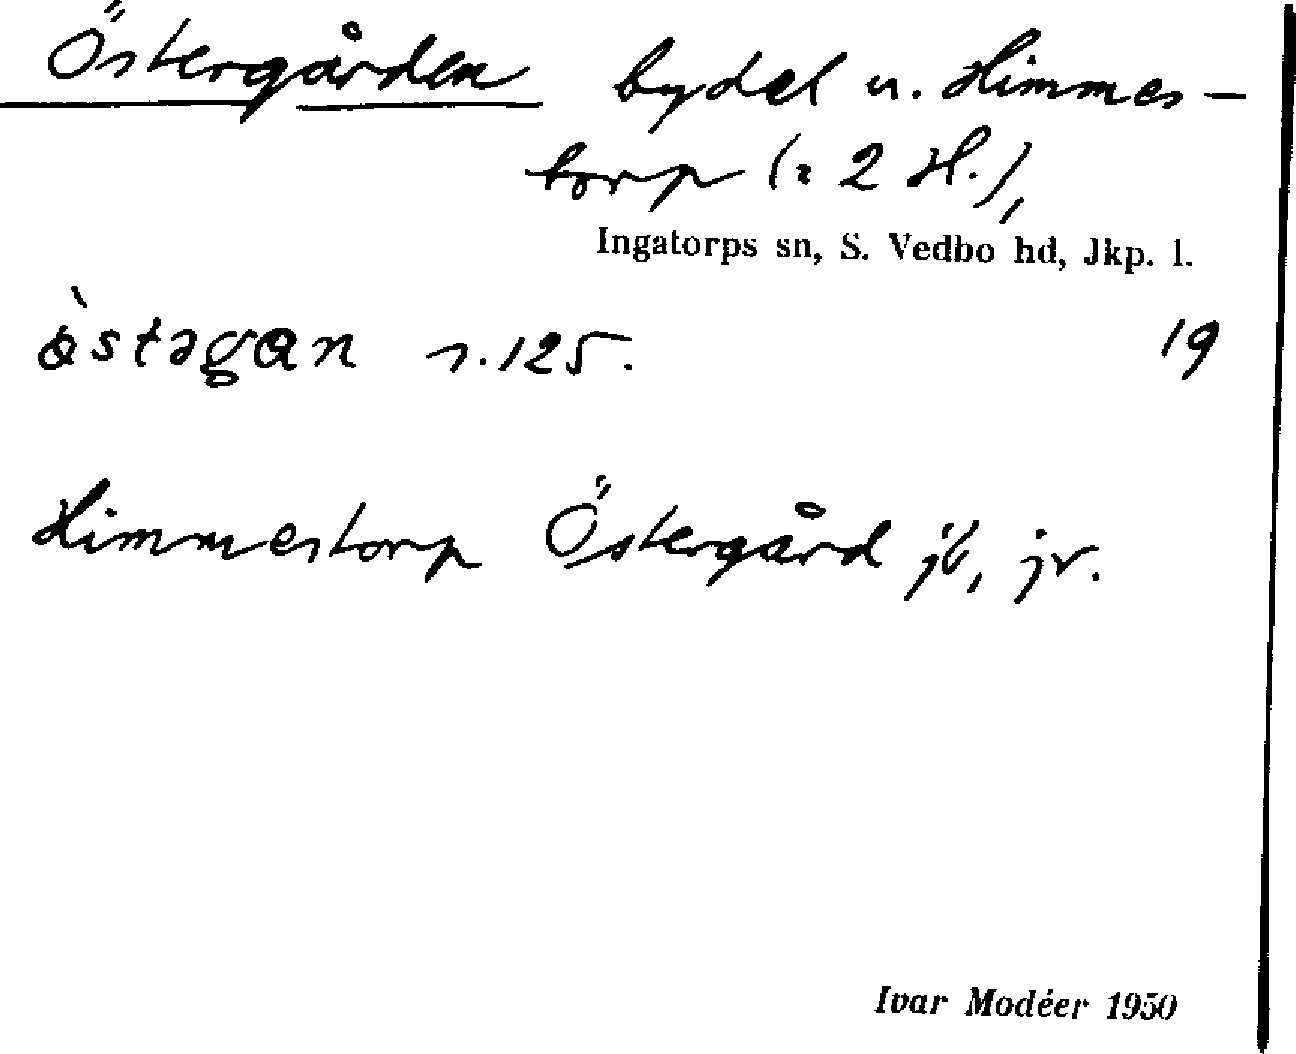 Östergården bydel u. Himmes-
torp (: 2 H.),
Ingatorps sn, S. Vedbo hd, Jkp. l.
s. 125. 19
Himmestorp Östergård jb, jr.
Ivar Modéer 1950